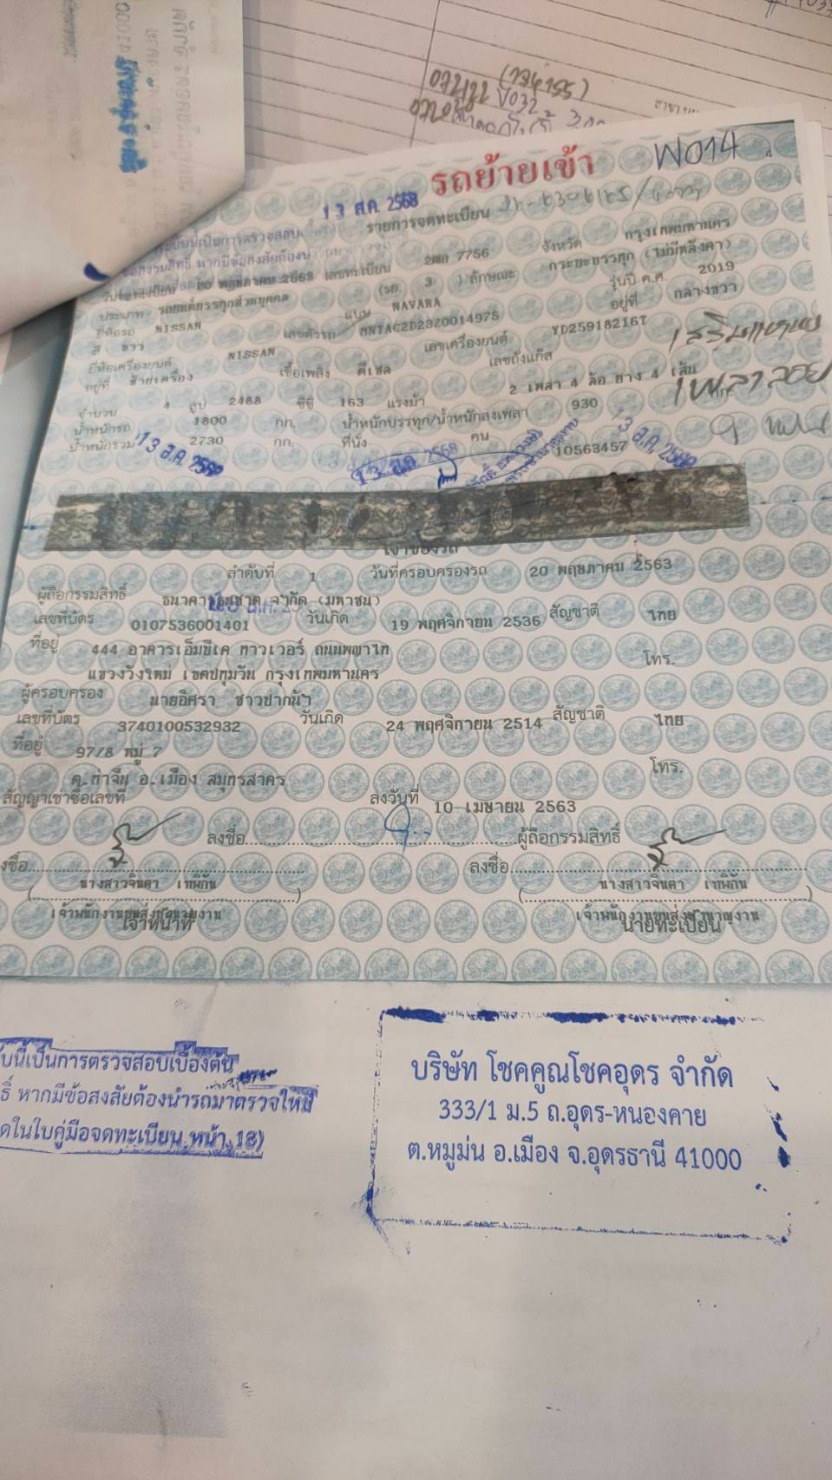 W014
รถย้ายเข้า
13 ส.ค. 2568
รายการจดทะเบียน
20 พฤษภาคม 2563 เลขทะเบียน 7756 จังหวัด กรุงเทพมหานคร
ประเภท รถยนต์บรรทุกส่วนบุคคล (รย. 3 ) ลักษณะ กระบะบรรทุก (ไม่มีหลังคา)
ยี่ห้อรถ NISSAN แบบ NAVARA รุ่นปี ค.ศ. 2019
สี ขาว เลขตัวรถ อยู่ที่ กลางขวา
ยี่ห้อเครื่องยนต์ NISSAN เลขเครื่องยนต์ YD25918216T
อยู่ที่ ซ้ายเครื่อง เชื้อเพลิง ดีเซล เลขถังแก๊ส
จำนวน 4 สูบ 2488 ซีซี 163 แรงม้า 2 เพลา 4 ล้อ ยาง 4 เส้น
น้ำหนักรถ 1800 กก. น้ำหนักบรรทุก/น้ำหนักลงเพลา 930
น้ำหนักรวม 2730 กก. ที่นั่ง คน
13 ส.ค. 2568
10563457
เจ้าของรถ
ลำดับที่ 1 วันที่ครอบครองรถ 20 พฤษภาคม 2563
ผู้ถือกรรมสิทธิ์ ธนาคารธนชาต จำกัด (มหาชน)
เลขที่บัตร 0107536001401 วันเกิด 19 พฤศจิกายน 2536 สัญชาติ ไทย
ที่อยู่ 444 อาคารเอ็มบีเค ทาวเวอร์ ถนนพญาไท โทร.
แขวงวังใหม่ เขตปทุมวัน กรุงเทพมหานคร
ผู้ครอบครอง นายอิศรา ชาวปากน้ำ
เลขที่บัตร 3740100532932 วันเกิด 24 พฤศจิกายน 2514 สัญชาติ ไทย
ที่อยู่ 97/8 หมู่ 7 โทร.
ต.ท่าจีน อ.เมือง สมุทรสาคร
สัญญาเช่าซื้อเลขที่ ลงวันที่ 10 เมษายน 2563
ลงชื่อ ผู้ถือกรรมสิทธิ์
งชื่อ ลงชื่อ
นางสาวจินดา เทพิกัน นางสาวจินดา เทพิกัน
เจ้าพนักงานขนส่งชำนาญงาน เจ้าพนักงานขนส่งชำนาญงาน
เจ้าหน้าที่ นายทะเบียน
บนี้เป็นการตรวจสอบเบื้องต้น
ธิ์ หากมีข้อสงสัยต้องนำรถมาตรวจใหม่
ดในใบคู่มือจดทะเบียน หน้า 18)
บริษัท โชคคูณโชคอุดร จำกัด
333/1 ม.5 ถ.อุดร-หนองคาย
ต.หมูม่น อ.เมือง จ.อุดรธานี 41000